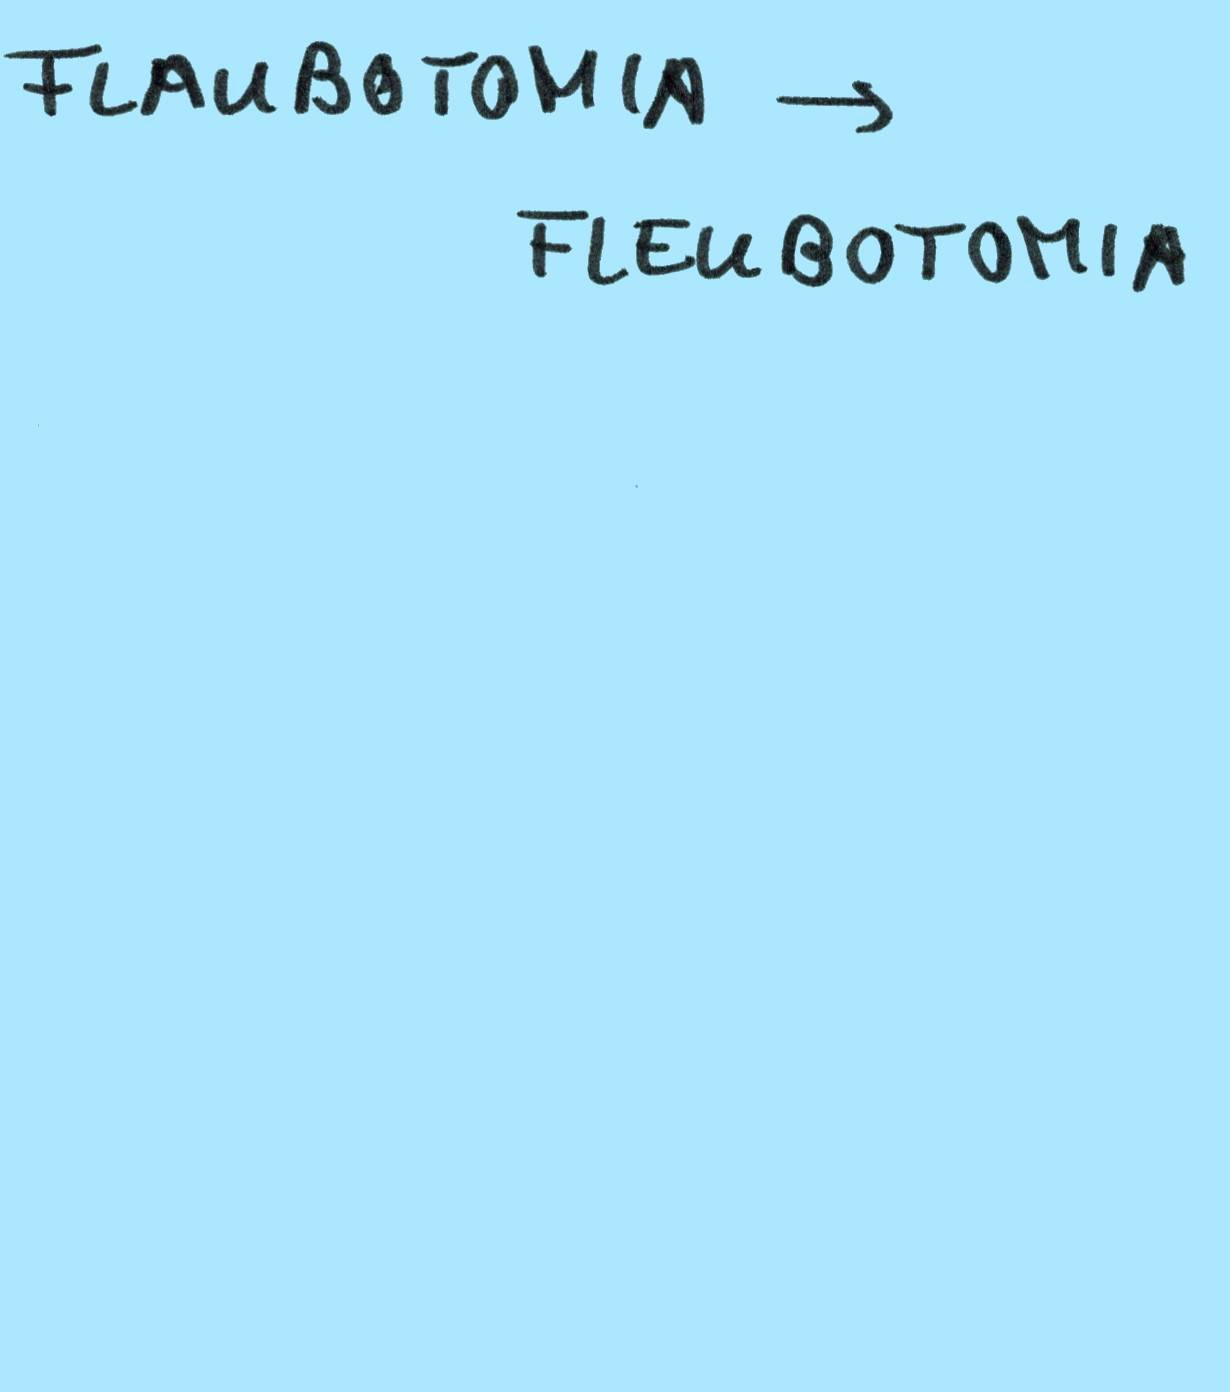 FLAUBOTOMIA →
FLEUBOTOMIA